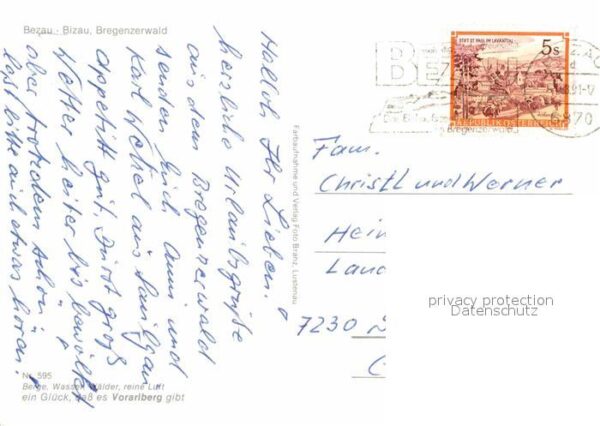 Bezau - Bizau, Bregenzerwald
Halloh Ihr Lieben!
herzliche Urlaubsgrüße
aus dem Bregenzerwald
senden Euch Anni und
Karl
Appetitt gut, Durst groß
Wetter heiter bis bewölkt
aber trotzdem schön!
laßt bitte auch etwas hören!
Nr. 595
Berge, Wasser, Wälder, reine Luft
ein Glück, daß es Vorarlberg gibt
Farbaufnahme und Verlag Foto Branz, Lustenau
STIFT ST. PAUL IM LAVANTTAL
5s
REPUBLIK ÖSTERREICH
BE
Bregenzerwald
6870
Fam.
Christl und Werner
Hein
Land
7230
privacy protection
Datenschutz